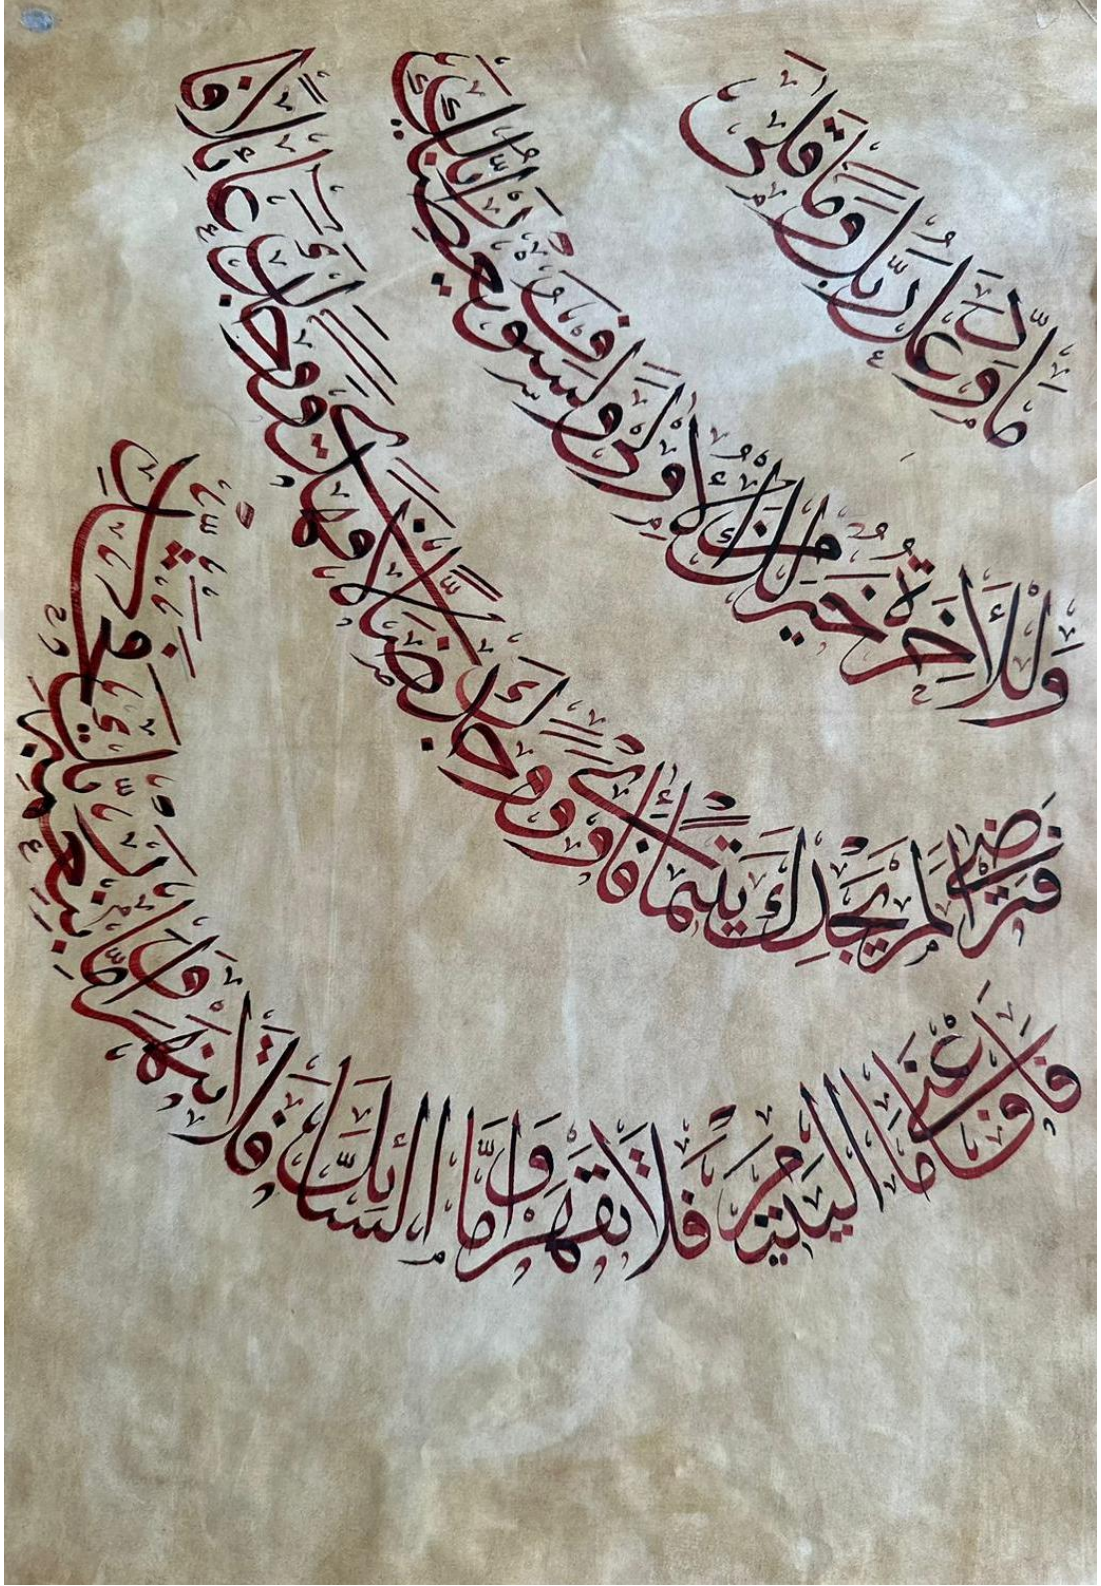 مَا وَدَّعَكَ رَبُّكَ وَمَا قَلَىٰ
وَلَلْآخِرَةُ خَيْرٌ لَّكَ مِنَ الْأُولَىٰ وَلَسَوْفَ يُعْطِيكَ رَبُّكَ
فَتَرْضَىٰ أَلَمْ يَجِدْكَ يَتِيمًا فَآوَىٰ وَوَجَدَكَ ضَالًّا فَهَدَىٰ وَوَجَدَكَ عَائِلًا
فَأَغْنَىٰ فَأَمَّا الْيَتِيمَ فَلَا تَقْهَرْ وَأَمَّا السَّائِلَ فَلَا تَنْهَرْ وَأَمَّا بِنِعْمَةِ رَبِّكَ فَحَدِّثْ